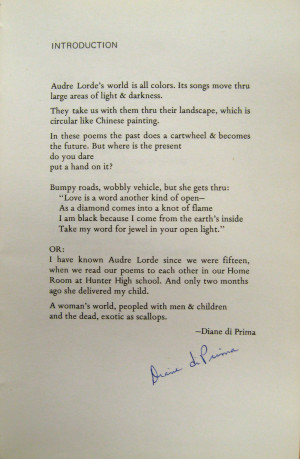 INTRODUCTION
Audre Lorde's world is all colors. Its songs move thru
large areas of light & darkness.
They take us with them thru their landscape, which is
circular like Chinese painting.
In these poems the past does a cartwheel & becomes
the future. But where is the present
do you dare
put a hand on it?
Bumpy roads, wobbly vehicle, but she gets thru:
"Love is a word another kind of open—
As a diamond comes into a knot of flame
I am black because I come from the earth's inside
Take my word for jewel in your open light."
OR:
I have known Audre Lorde since we were fifteen,
when we read our poems to each other in our Home
Room at Hunter High school. And only two months
ago she delivered my child.
A woman's world, peopled with men & children
and the dead, exotic as scallops.
—Diane di Prima
Diane di Prima